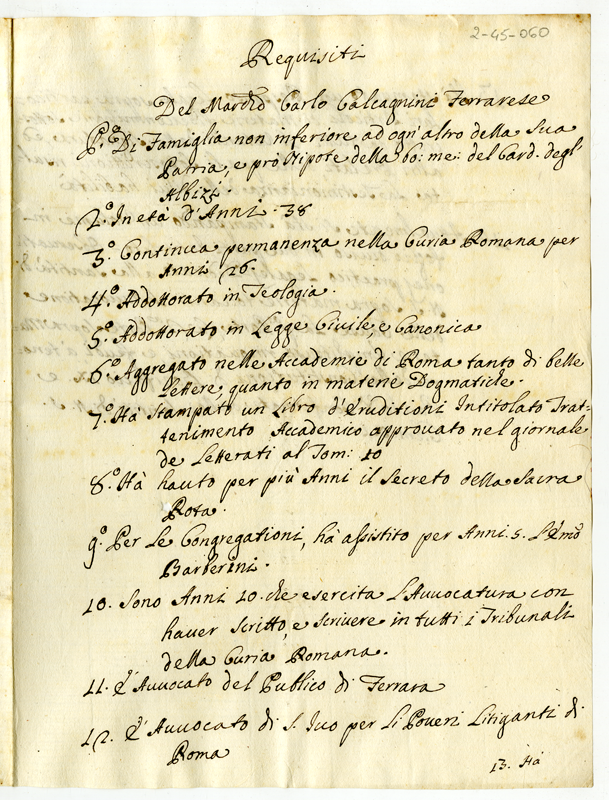 2-45-060
Requisiti
Del March.º Carlo Calcagnini Ferrarese
P.º Di Famiglia non inferiore ad ogn'altro della Sua
Patria, e prò Nipote della bo: me: del Card. degl'
Albizi.
2.º In età d'Anni 38
3.º Continua permanenza nella Curia Romana per
Anni 16.
4.º Addottorato in Teologia.
5.º Addottorato in Legge Civile, e Canonica
6.º Aggregato nelle Accademie di Roma tanto di belle
Lettere, quanto in materie Dogmatiche.
7.º Hà Stampato un Libro d'Eruditioni Intitolato Trat=
tenimento Accademico approvato nel giornale
de Letterati al Tom: 10
8.º Hà hauto per più Anni il Secreto della Sacra
Rota.
9.º Per Le Congregationi, hà assistito per Anni 5. L'Emõ
Barberini.
10. Sono Anni 10. che esercita L'Avvocatura con
haver Scritto, e scrivere in tutti i Tribunali
della Curia Romana.
11. E' Avvocato del Publico di Ferrara
12. E' Avvocato di S. Ivo per Li Poveri Litiganti di
Roma
13. Hà